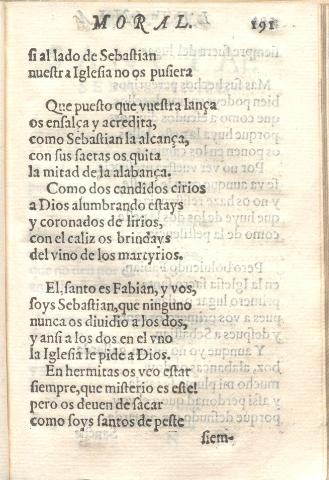 MORAL. 191
si al lado de Sebastian
nuestra Iglesia no os pusiera
Que puesto que vuestra lança
os ensalça y acredita,
como Sebastian la alcança,
con sus saetas os quita
la mitad de la alabança.
Como dos candidos cirios
a Dios alumbrando estays
y coronados de lirios,
con el caliz os brindays
del vino de los martyrios.
El santo es Fabian, y vos,
soys Sebastian, que ninguno
nunca os diuidio a los dos,
y ansi a los dos en el vno
la Iglesia le pide a Dios.
En hermitas os veo estar
siempre, que misterio es este!
pero os deuen de sacar
como soys santos de peste
siem-